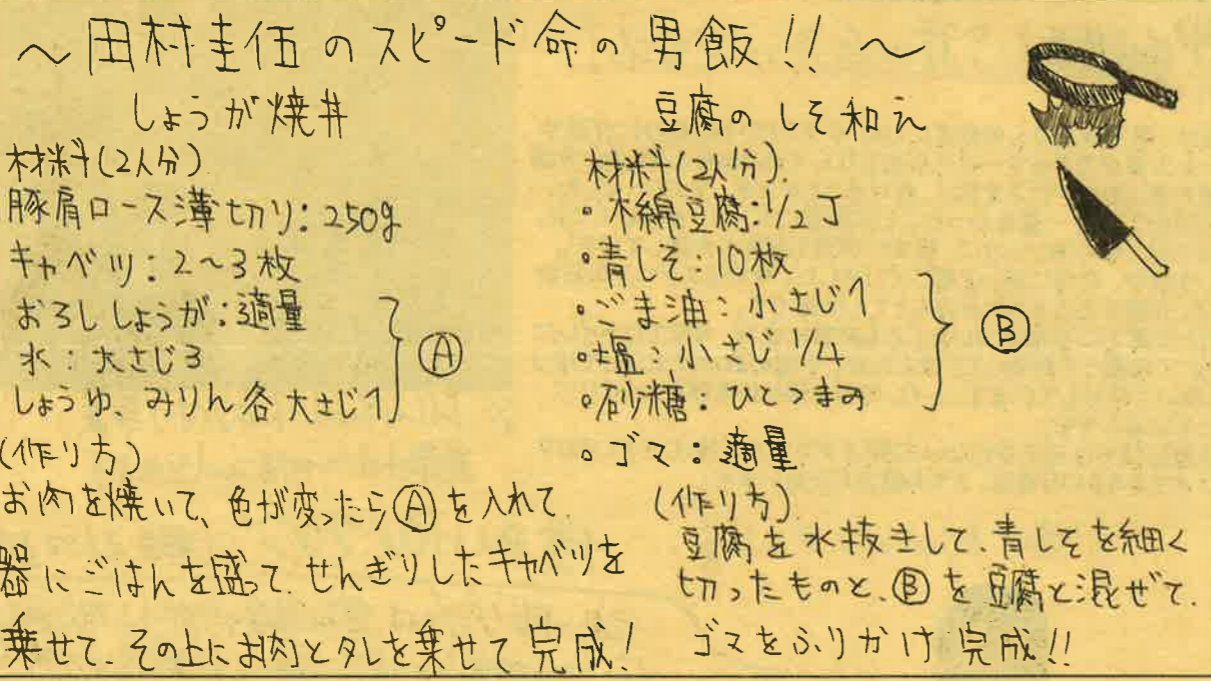 ～田村圭伍のスピード命の男飯!!～
しょうが焼丼
材料(2人分)
豚肩ロース薄切り:250g
キャベツ:2～3枚
おろししょうが:適量
水:大さじ3
しょうゆ、みりん各大さじ1
Ⓐ
(作り方)
お肉を焼いて、色が変ったらⒶを入れて
器にごはんを盛って、せんぎりしたキャベツを
乗せて、その上にお肉とタレを乗せて完成!
豆腐のしそ和え
材料(2人分)
・木綿豆腐:1/2丁
・青しそ:10枚
・ごま油:小さじ1
・塩:小さじ1/4
・砂糖:ひとつまみ
Ⓑ
・ゴマ:適量
(作り方)
豆腐を水抜きして、青しそを細く
切ったものと、Ⓑを豆腐と混ぜて、
ゴマをふりかけ完成!!